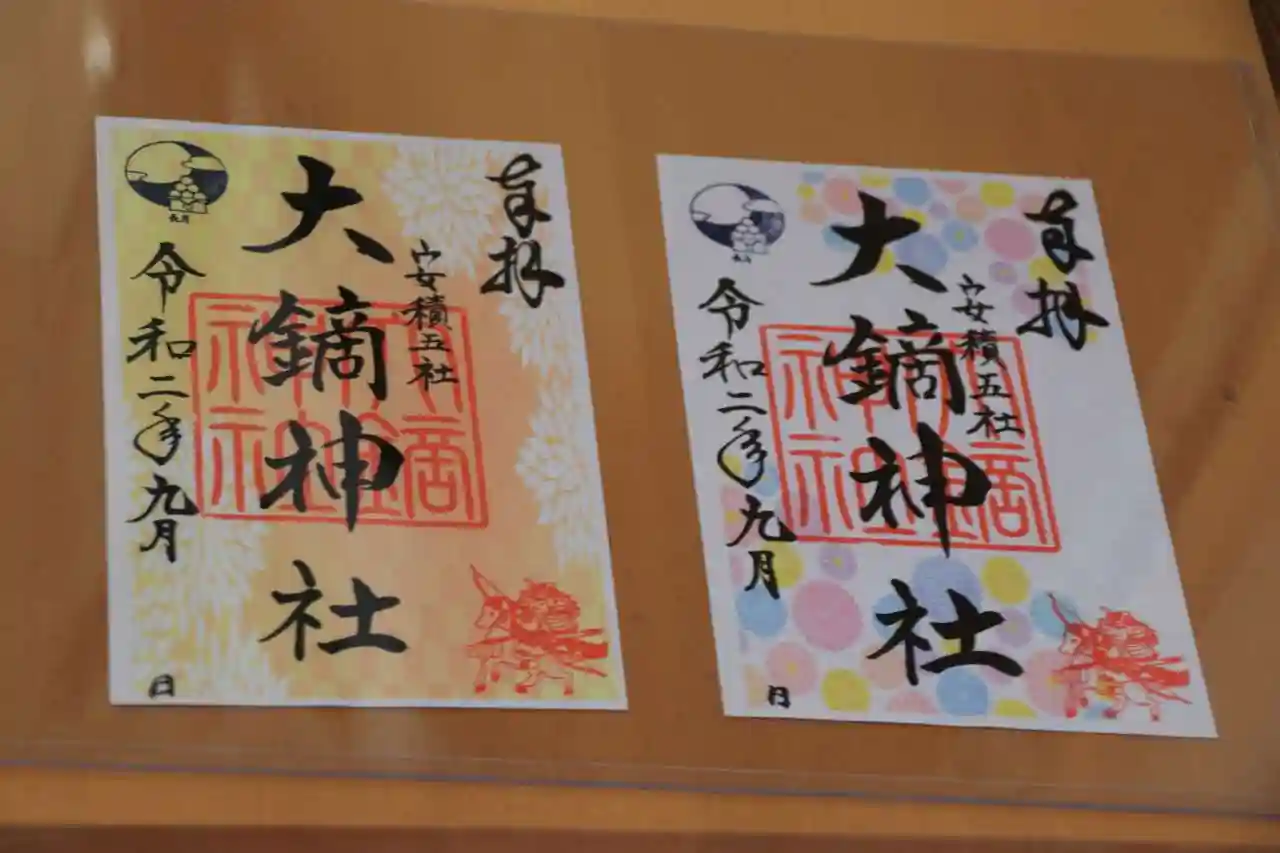 奉拝
安積五社
大鏑神社
令和二年九月
日
長月
奉拝
安積五社
大鏑神社
令和二年九月
日
長月